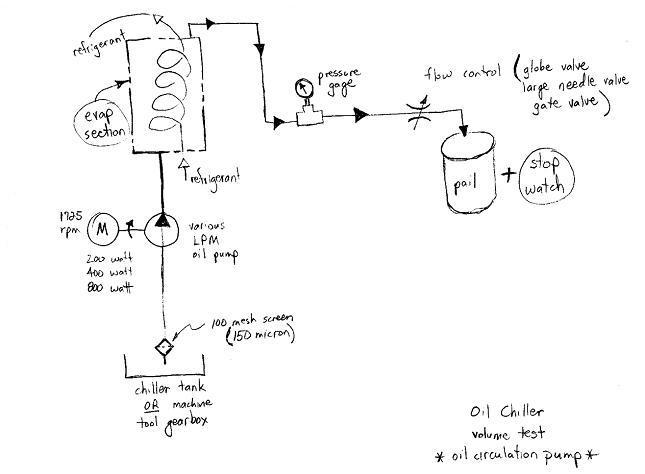 refrigerant
evap
section
pressure
gage
flow control (globe valve
large needle valve
gate valve)
pail
+
stop
watch
refrigerant
1725
rpm
M
various
LPM
oil pump
200 watt
400 watt
800 watt
100 mesh screen
(150 micron)
chiller tank
OR machine
tool gearbox
Oil Chiller
volume test
* oil circulation pump *